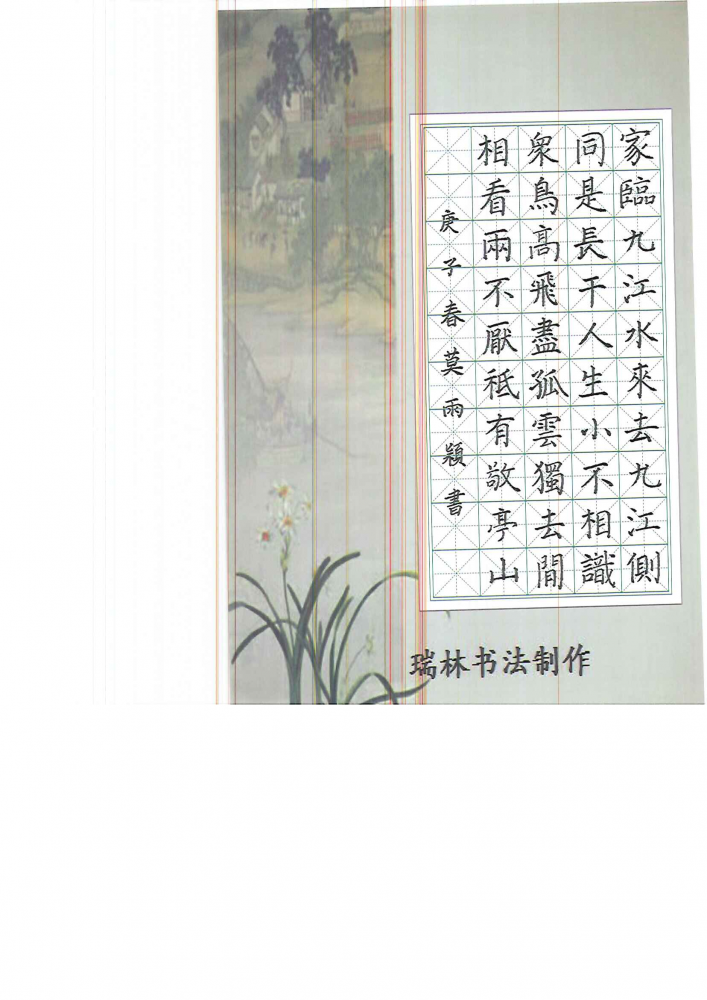 家臨九江水來去九江側
同是長干人生小不相識
衆鳥高飛盡孤雲獨去閒
相看兩不厭祗有敬亭山
庚子春莫雨颖書
瑞林书法制作